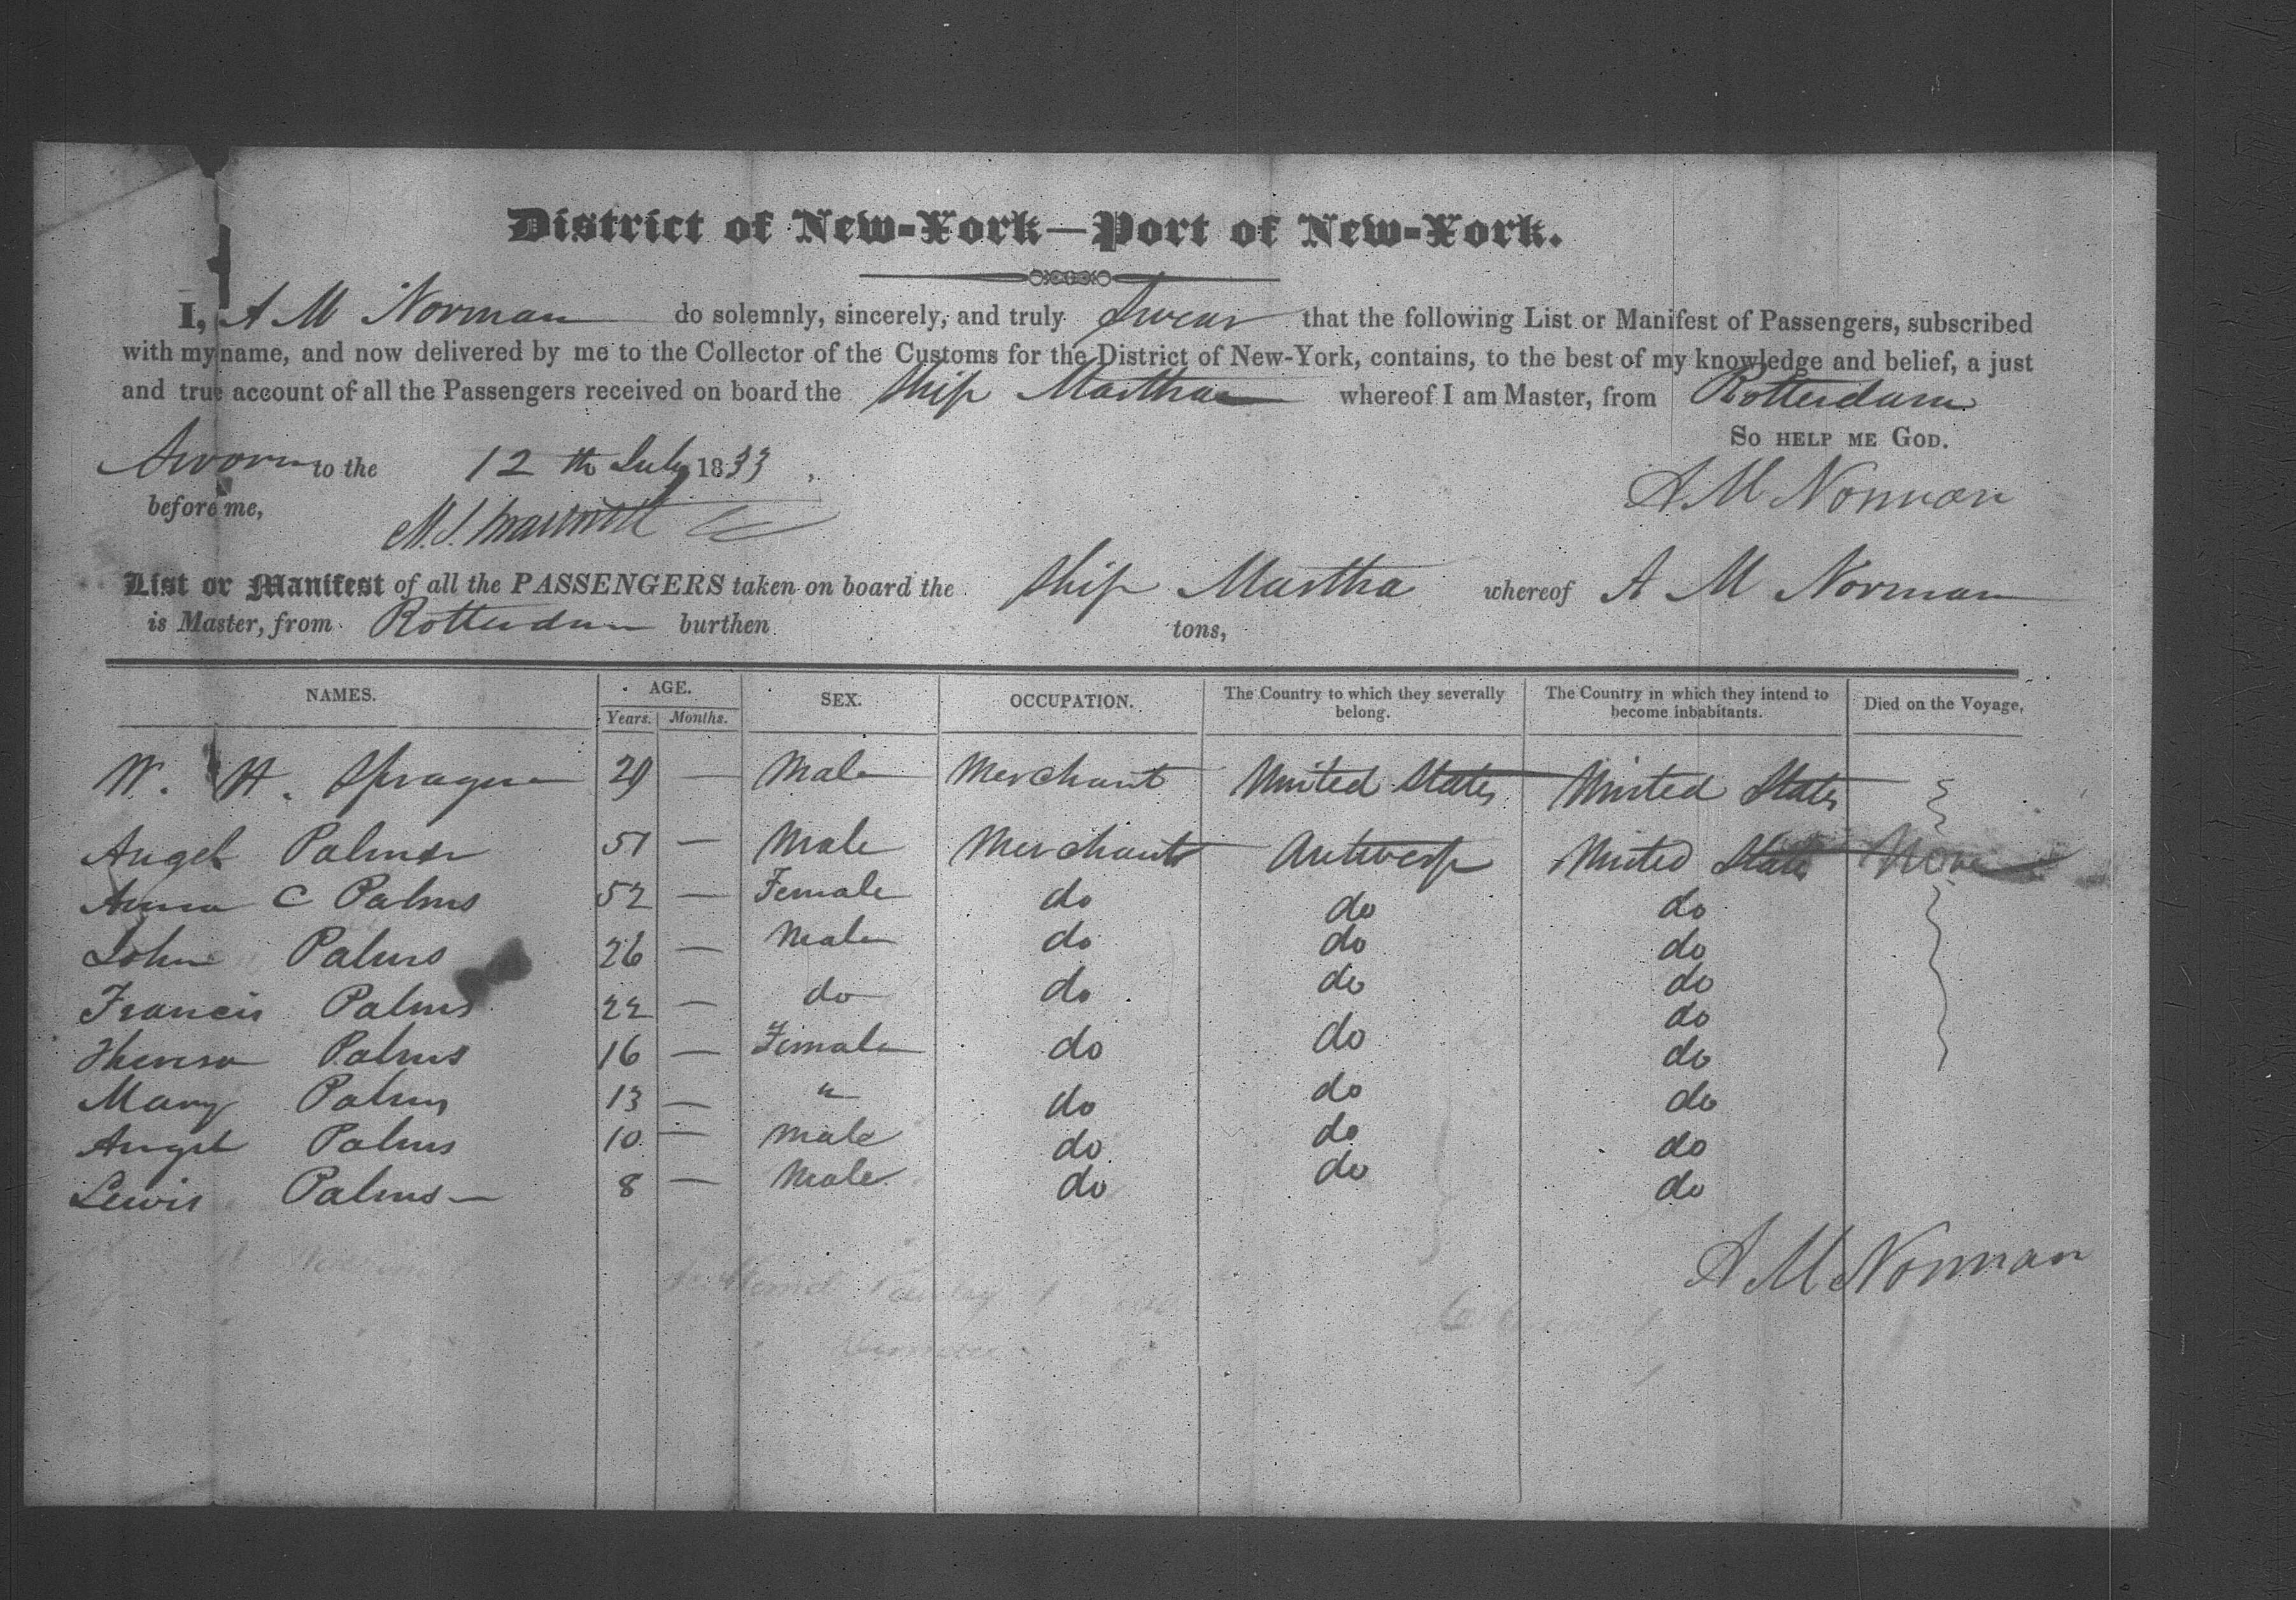 District of New-York—Port of New-York.
I, A M Norman do solemnly, sincerely, and truly Swear that the following List or Manifest of Passengers, subscribed
with my name, and now delivered by me to the Collector of the Customs for the District of New-York, contains, to the best of my knowledge and belief, a just
and true account of all the Passengers received on board the Ship Martha whereof I am Master, from Rotterdam
So help me God.
Sworn to the 12th July 1833
A M Norman
before me,
List or Manifest of all the PASSENGERS taken on board the Ship Martha whereof A M Norman
is Master, from Rotterdam burthen tons,
NAMES. AGE. Years. Months. SEX. OCCUPATION. The Country to which they severally belong. The Country in which they intend to become inhabitants. Died on the Voyage,
W. H. Sprague 29 — Male Merchant United States United States
Angel Palmer 51 — Male Merchant Antwerp United States None
Anna C Palms 52 — Female do do do
John Palms 26 — Male do do do
Francis Palms 22 — do do do do
do
Theresa Palms 16 — Female do do do
Mary Palms 13 — " do do do
Angel Palms 10 — Male do do do
Lewis Palms — 8 — Male do do do
A M Norman